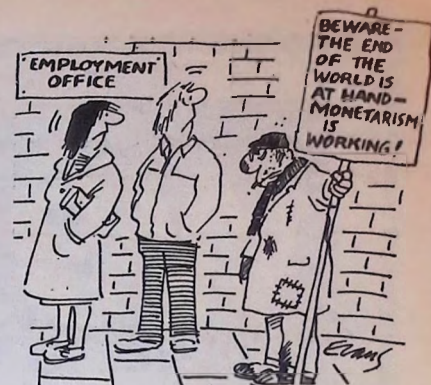 EMPLOYMENT
OFFICE
BEWARE -
THE END
OF THE
WORLD IS
AT HAND -
MONETARISM
IS
WORKING!
Evans